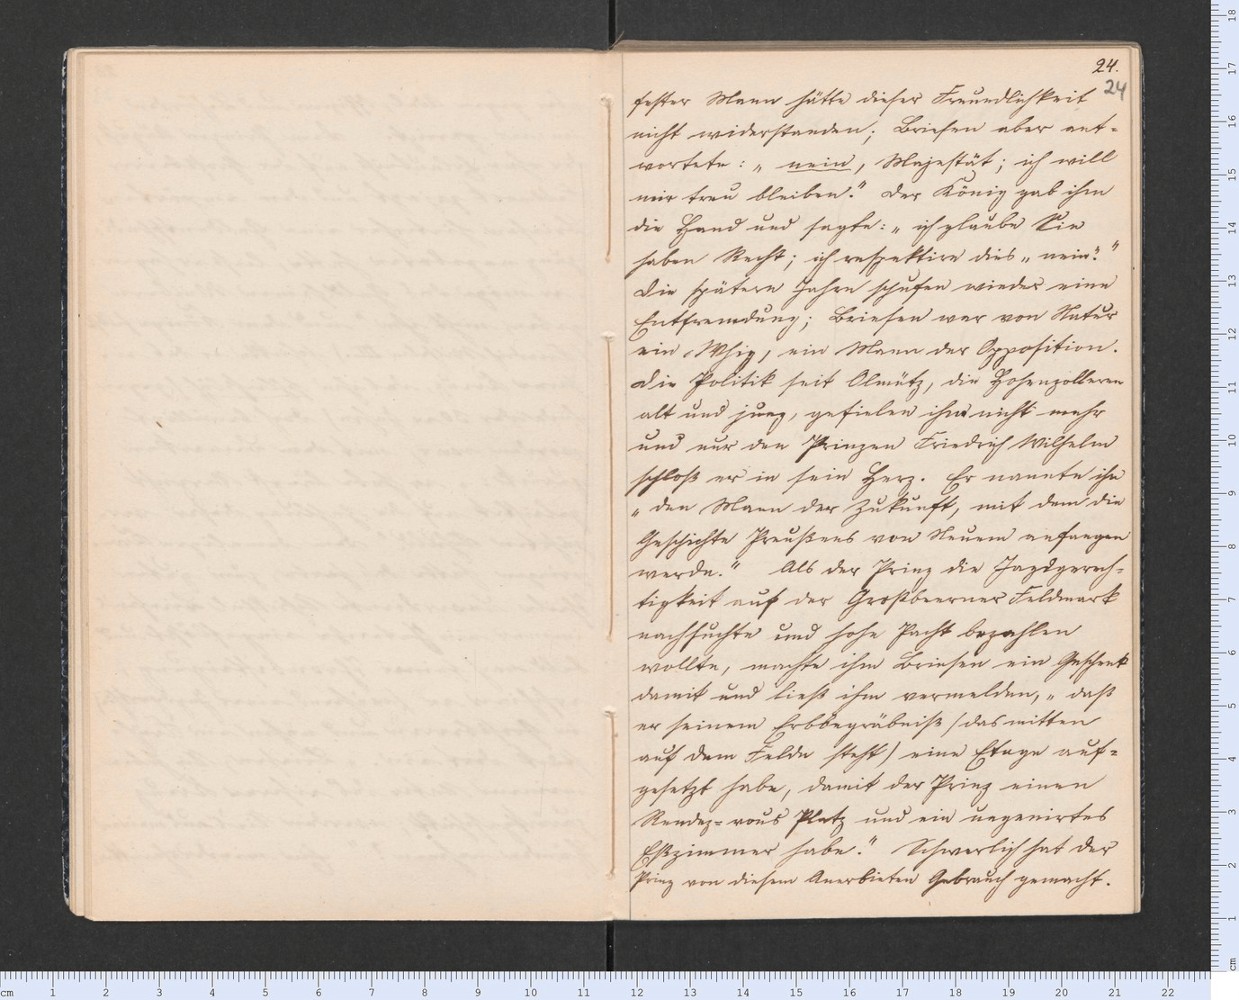 24.
24
fester Mann hätte dieser Freundlichkeit
nicht widerstanden; Briesen aber ant-
wortete: „nein, Majestät; ich will
mir treu bleiben.“ Der König gab ihm
die Hand und sagte: „ich glaube Sie
haben Recht; ich respektire dies „nein“.“
Die spätern Jahre schufen wieder eine
Entfremdung; Briesen war von Natur
ein Whig, ein Mann der Opposition.
Die Politik seit Olmütz, die Hohenzollern
alt und jung, gefielen ihm nicht mehr
und nur den Prinzen Friedrich Wilhelm
schloß er in sein Herz. Er nannte ihn
„den Mann der Zukunft, mit dem die
Geschichte Preußens von Neuem anfangen
werde.“ Als der Prinz die Jagdgerech-
tigkeit auf der Großbeerner Feldmark
nachsuchte und hohe Pacht bezahlen
wollte, machte ihm Briesen ein Geschenk
damit und ließ ihm vermelden, „daß
er seinem Erbbegräbniß (das mitten
auf dem Felde steht) eine Etage auf-
gesetzt habe, damit der Prinz einen
Rendez-vous Platz und ein ungenirtes
Eßzimmer habe.“ Schwerlich hat der
Prinz von diesem Anerbieten Gebrauch gemacht.